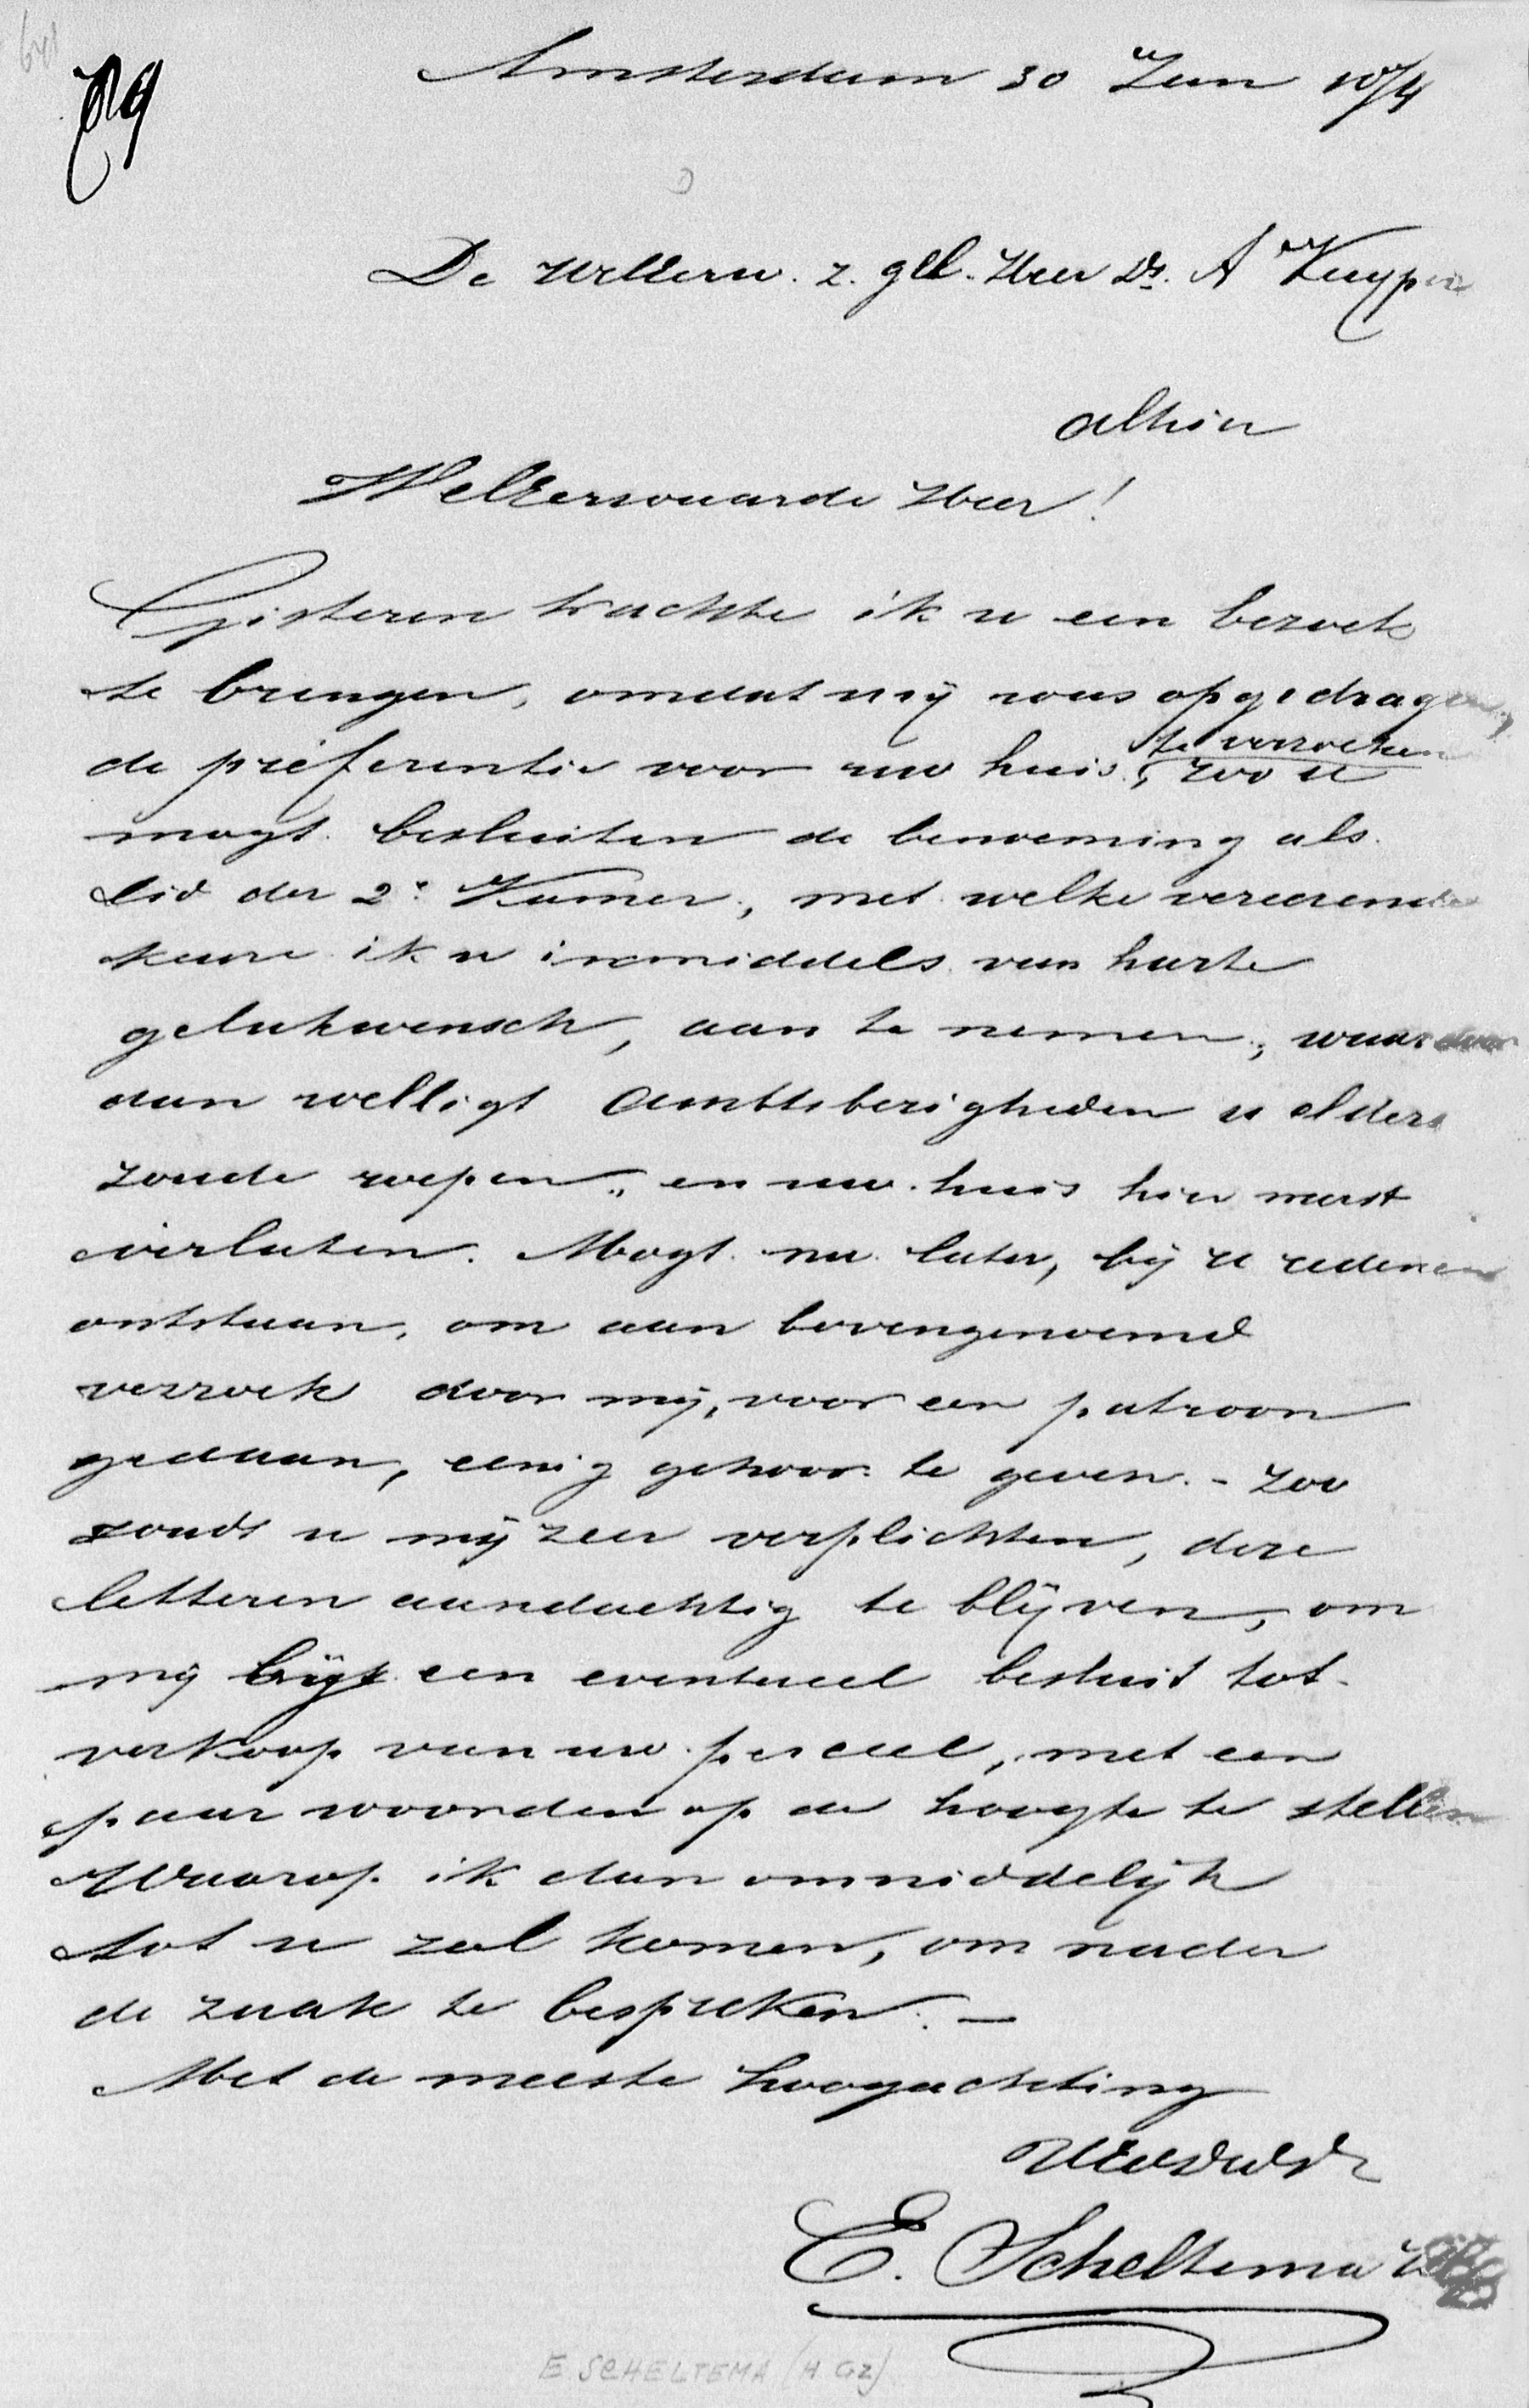 Amsterdam 30 Jan 1874
De WelEerw. z. gel. Heer Dr. A Kuyper
alhier
WelEerwaarde Heer!
Gisteren trachtte ik u een bezoek
te brengen, omdat mij was opgedragen,
de préferentie voor uw huis, te verzoeken zoo u
mogt besluiten de benoeming als
lid der 2e Kamer, met welke vereerende
keuze ik u inmiddels van harte
gelukwensch, aan te nemen, waardoor
dan welligt ambtsbezigheden u elders
zoude roepen, en uw huis hier moest
verlaten. Mogt nu later, bij u redenen
ontstaan, om aan bovengenoemd
verzoek door mij, voor een patroon
gedaan, eenig gehoor te geven. - Zoo
zoudt u mij zeer verplichten, deze
letteren aandachtig te blijven, om
mij bij een eventueel besluit tot
verkoop van uw perceel, met een
paar woorden op de hoogte te stellen
Waarop ik dan onmiddelijk
tot u zal komen, om nader
de zaak te bespreken. —
Met de meeste hoogachting
UwEdDwDr
E. Scheltema
E SCHELTEMA (H GZ)